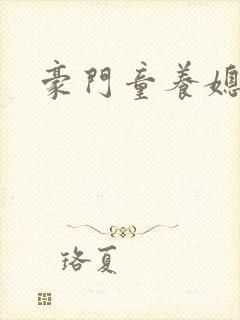 豪門童養媳
珞夏